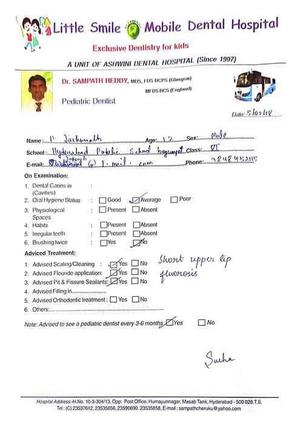 Little Smile Mobile Dental Hospital
Exclusive Dentistry for kids
A UNIT OF ASHWINI DENTAL HOSPITAL (Since 1997)
Dr. SAMPATH REDDY, MDS, FDS RCPS (Glasgow)
MFDS RCS (England)
Pediatric Dentist
Date:
Name: Age: 12 Sex: Male
School: Hyderabad Public School Begumpet Class: VI
E-mail: Phone:
On Examination:
1. Dental Caries in (Cavities) :
2. Oral Hygiene Status : Good Average Poor
3. Physiological Spaces : Present Absent
4. Habits : Present Absent
5. Irregular teeth : Present Absent
6. Brushing twice : Yes No
Adviced Treatment:
1. Advised Scaling/Cleaning : Yes No
Short upper lip
2. Advised Flouride application: Yes No
fluorosis
3. Advised Pit & Fissure Sealants: Yes No
4. Advised Filling in
5. Advised Orthodontic treatment : Yes No
6. Others:
Note: Advised to see a pediatric dentist every 3-6 months Yes No
Hospital Address-H.No. 10-3-304/13, Opp: Post Office, Humayunnagar, Masab Tank, Hyderabad - 500 028 T.S.
Tel: (O) 23537612, 23535656, 23590690, 23535858, E-mail : sampathcheruku@yahoo.com